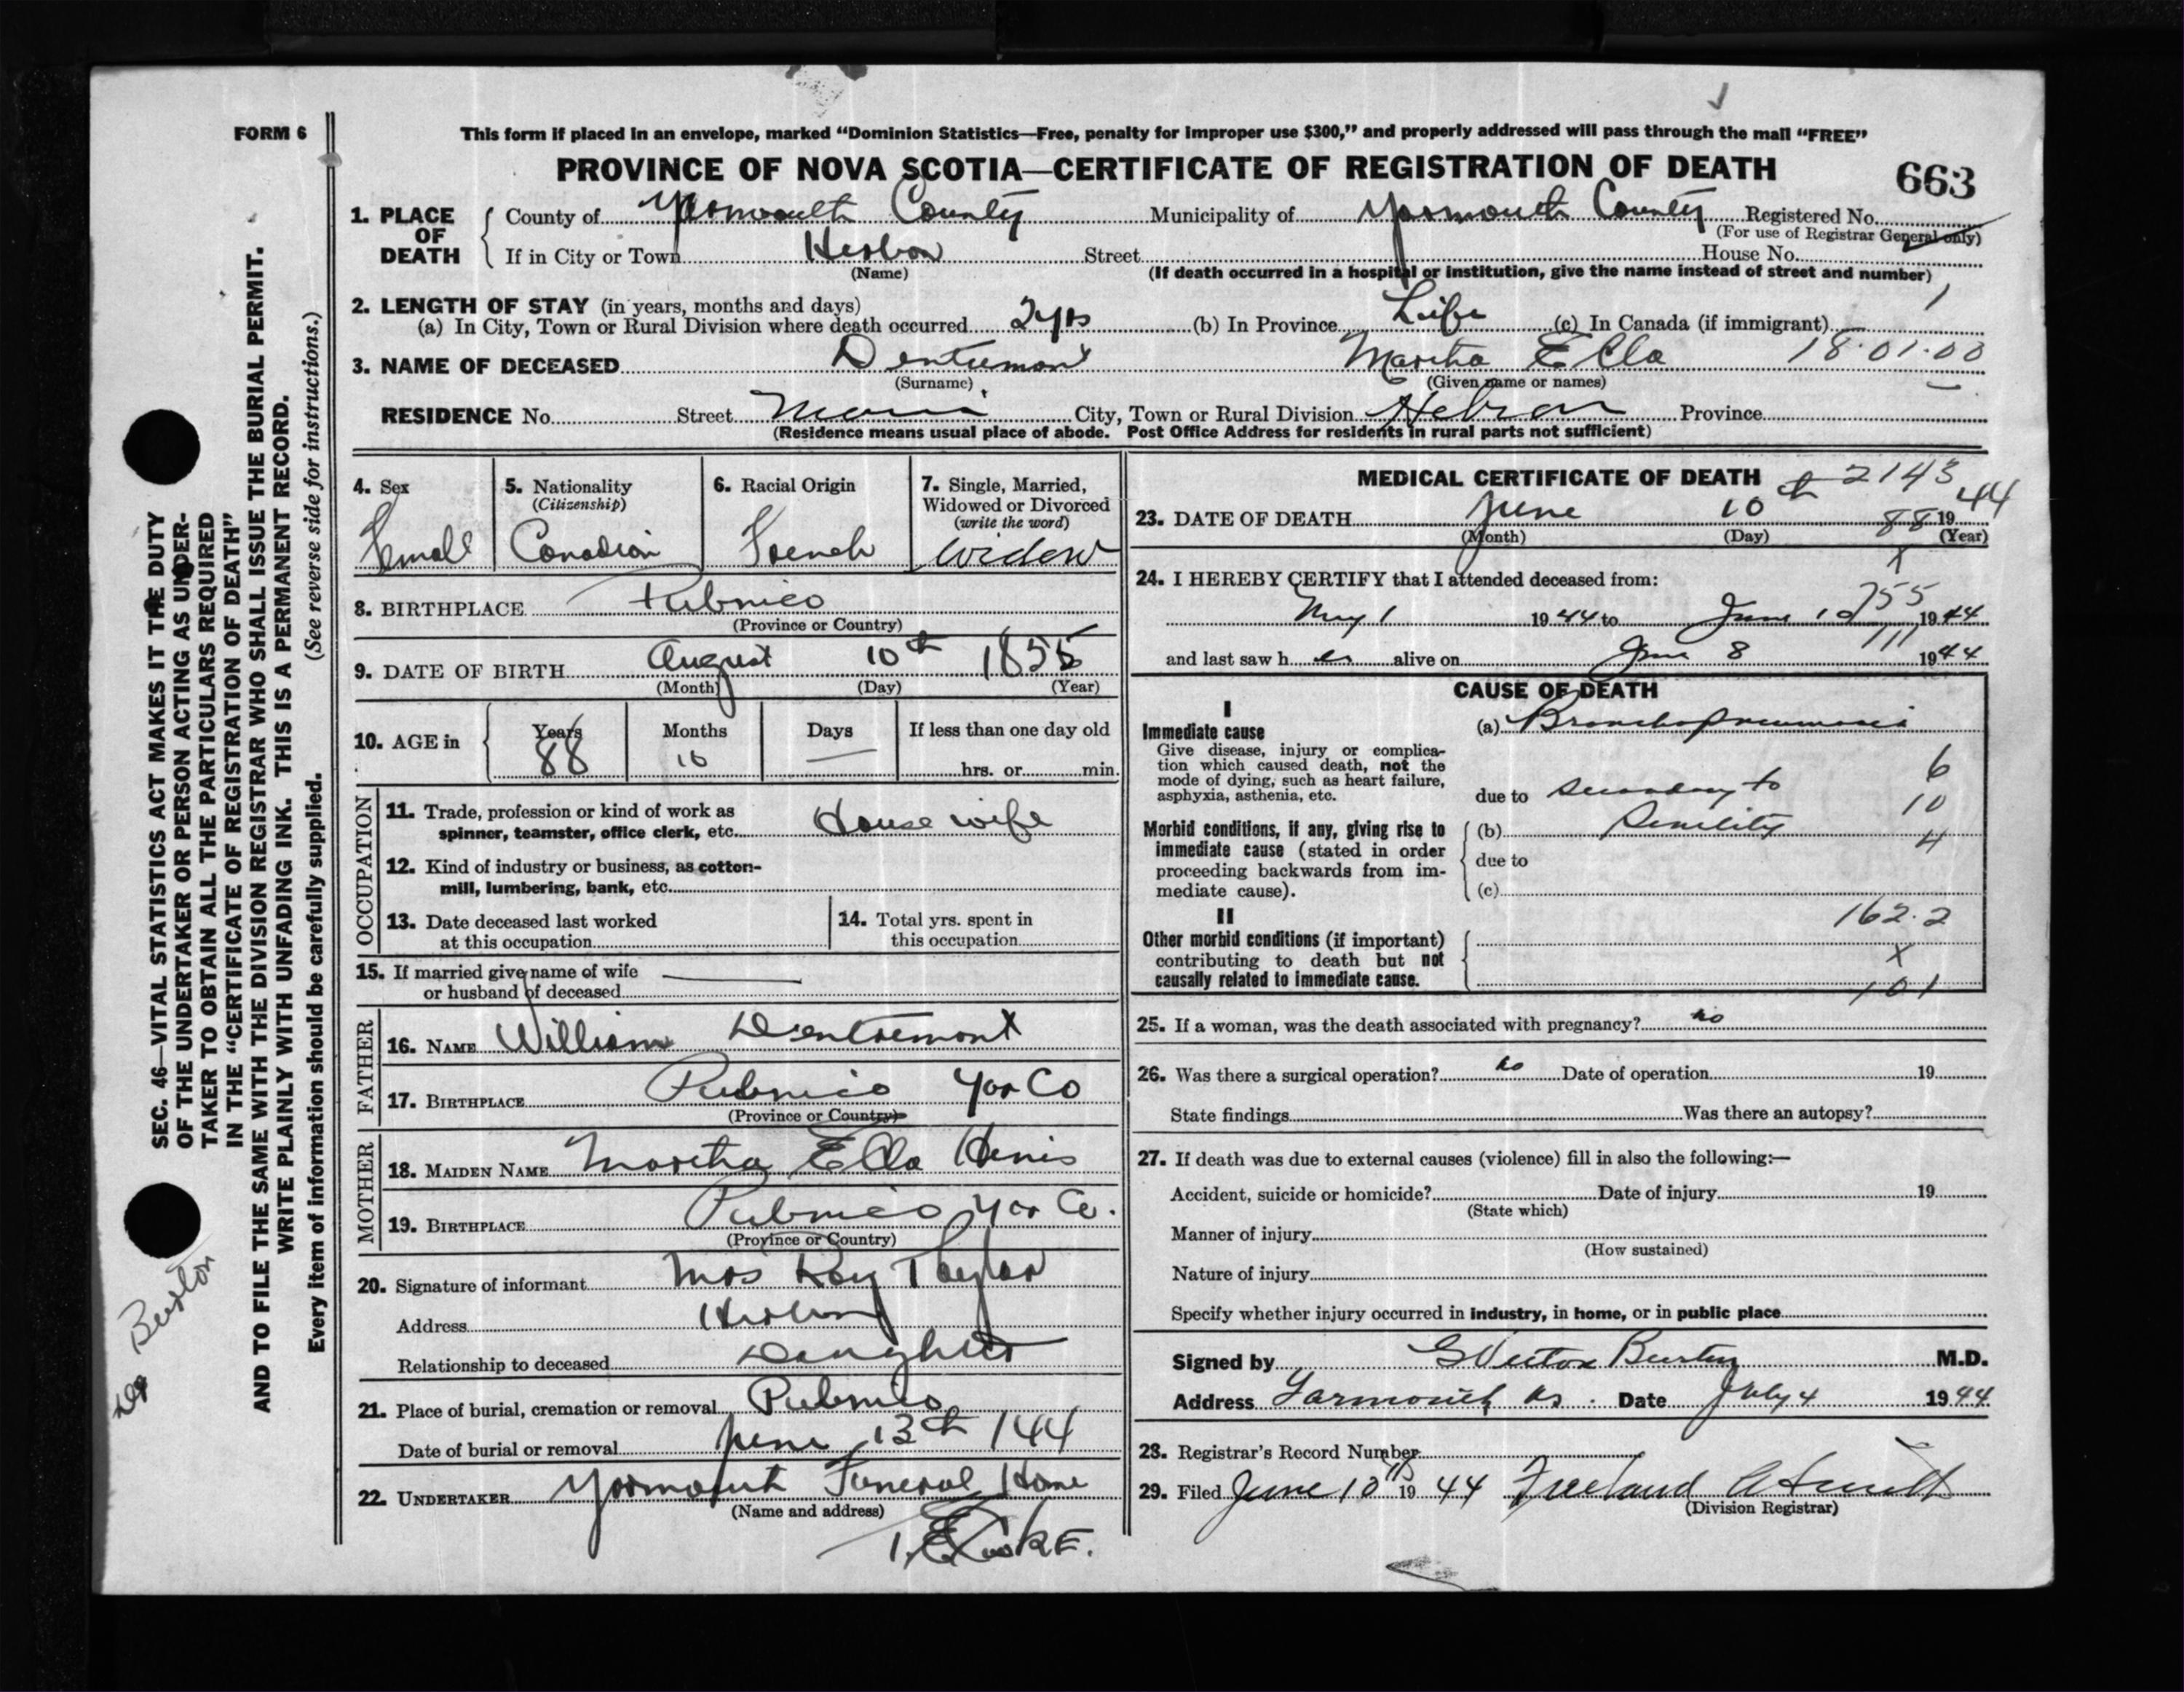 FORM 6
This form if placed in an envelope, marked “Dominion Statistics—Free, penalty for improper use $300,” and properly addressed will pass through the mail “FREE”
PROVINCE OF NOVA SCOTIA—CERTIFICATE OF REGISTRATION OF DEATH
663
1. PLACE OF DEATH
County of Yarmouth County Municipality of Yarmouth County Registered No.
(For use of Registrar General only)
If in City or Town Hebron Street House No.
(Name) (If death occurred in a hospital or institution, give the name instead of street and number)
2. LENGTH OF STAY (in years, months and days)
(a) In City, Town or Rural Division where death occurred 2 yrs (b) In Province Life (c) In Canada (if immigrant)
3. NAME OF DECEASED Dentremont Martha Ella 18.01.00
(Surname) (Given name or names)
RESIDENCE No. Street Main City, Town or Rural Division Hebron Province
(Residence means usual place of abode. Post Office Address for residents in rural parts not sufficient)
4. Sex 5. Nationality 6. Racial Origin 7. Single, Married,
(Citizenship) Widowed or Divorced
(write the word)
Female Canadian French Widow
8. BIRTHPLACE Pubnico
(Province or Country)
9. DATE OF BIRTH August 10th 1855
(Month) (Day) (Year)
10. AGE in Years Months Days If less than one day old
88 10 — hrs. or min.
OCCUPATION
11. Trade, profession or kind of work as
spinner, teamster, office clerk, etc. House wife
12. Kind of industry or business, as cotton-
mill, lumbering, bank, etc.
13. Date deceased last worked
at this occupation
14. Total yrs. spent in
this occupation
15. If married give name of wife
or husband of deceased
FATHER
16. NAME William Dentremont
17. BIRTHPLACE Pubnico Yar Co
(Province or Country)
MOTHER
18. MAIDEN NAME Martha Ella
19. BIRTHPLACE Pubnico Yar Co.
(Province or Country)
20. Signature of informant Mrs Roy Taylor
Address Hebron
Relationship to deceased Daughter
21. Place of burial, cremation or removal Pubnico
Date of burial or removal June 13th /44
22. UNDERTAKER Yarmouth Funeral Home
(Name and address)
MEDICAL CERTIFICATE OF DEATH 2143
23. DATE OF DEATH June 10th 1944
88
(Month) (Day) (Year)
X
24. I HEREBY CERTIFY that I attended deceased from:
755
May 1 1944 to June 10 1944
111
and last saw her alive on June 8 1944
CAUSE OF DEATH
I
Immediate cause
Give disease, injury or complica-
tion which caused death, not the
mode of dying, such as heart failure,
asphyxia, asthenia, etc.
(a) Bronchopneumonia
6
due to secondary to
10
Morbid conditions, if any, giving rise to
immediate cause (stated in order
proceeding backwards from im-
mediate cause).
(b) Senility
4
due to
(c)
162.2
II
Other morbid conditions (if important)
contributing to death but not
causally related to immediate cause.
X
101
25. If a woman, was the death associated with pregnancy? no
26. Was there a surgical operation? no Date of operation 19
State findings Was there an autopsy?
27. If death was due to external causes (violence) fill in also the following:—
Accident, suicide or homicide? Date of injury 19
(State which)
Manner of injury
(How sustained)
Nature of injury
Specify whether injury occurred in industry, in home, or in public place
Signed by G Victor Burton M.D.
Address Yarmouth NS. Date July 4 1944
28. Registrar's Record Number
29. Filed June 10th 1944 Freeland
(Division Registrar)
SEC. 46—VITAL STATISTICS ACT MAKES IT THE DUTY
OF THE UNDERTAKER OR PERSON ACTING AS UNDER-
TAKER TO OBTAIN ALL THE PARTICULARS REQUIRED
IN THE “CERTIFICATE OF REGISTRATION OF DEATH”
AND TO FILE THE SAME WITH THE DIVISION REGISTRAR WHO SHALL ISSUE THE BURIAL PERMIT.
WRITE PLAINLY WITH UNFADING INK. THIS IS A PERMANENT RECORD.
Every item of information should be carefully supplied. (See reverse side for instructions.)
Burton